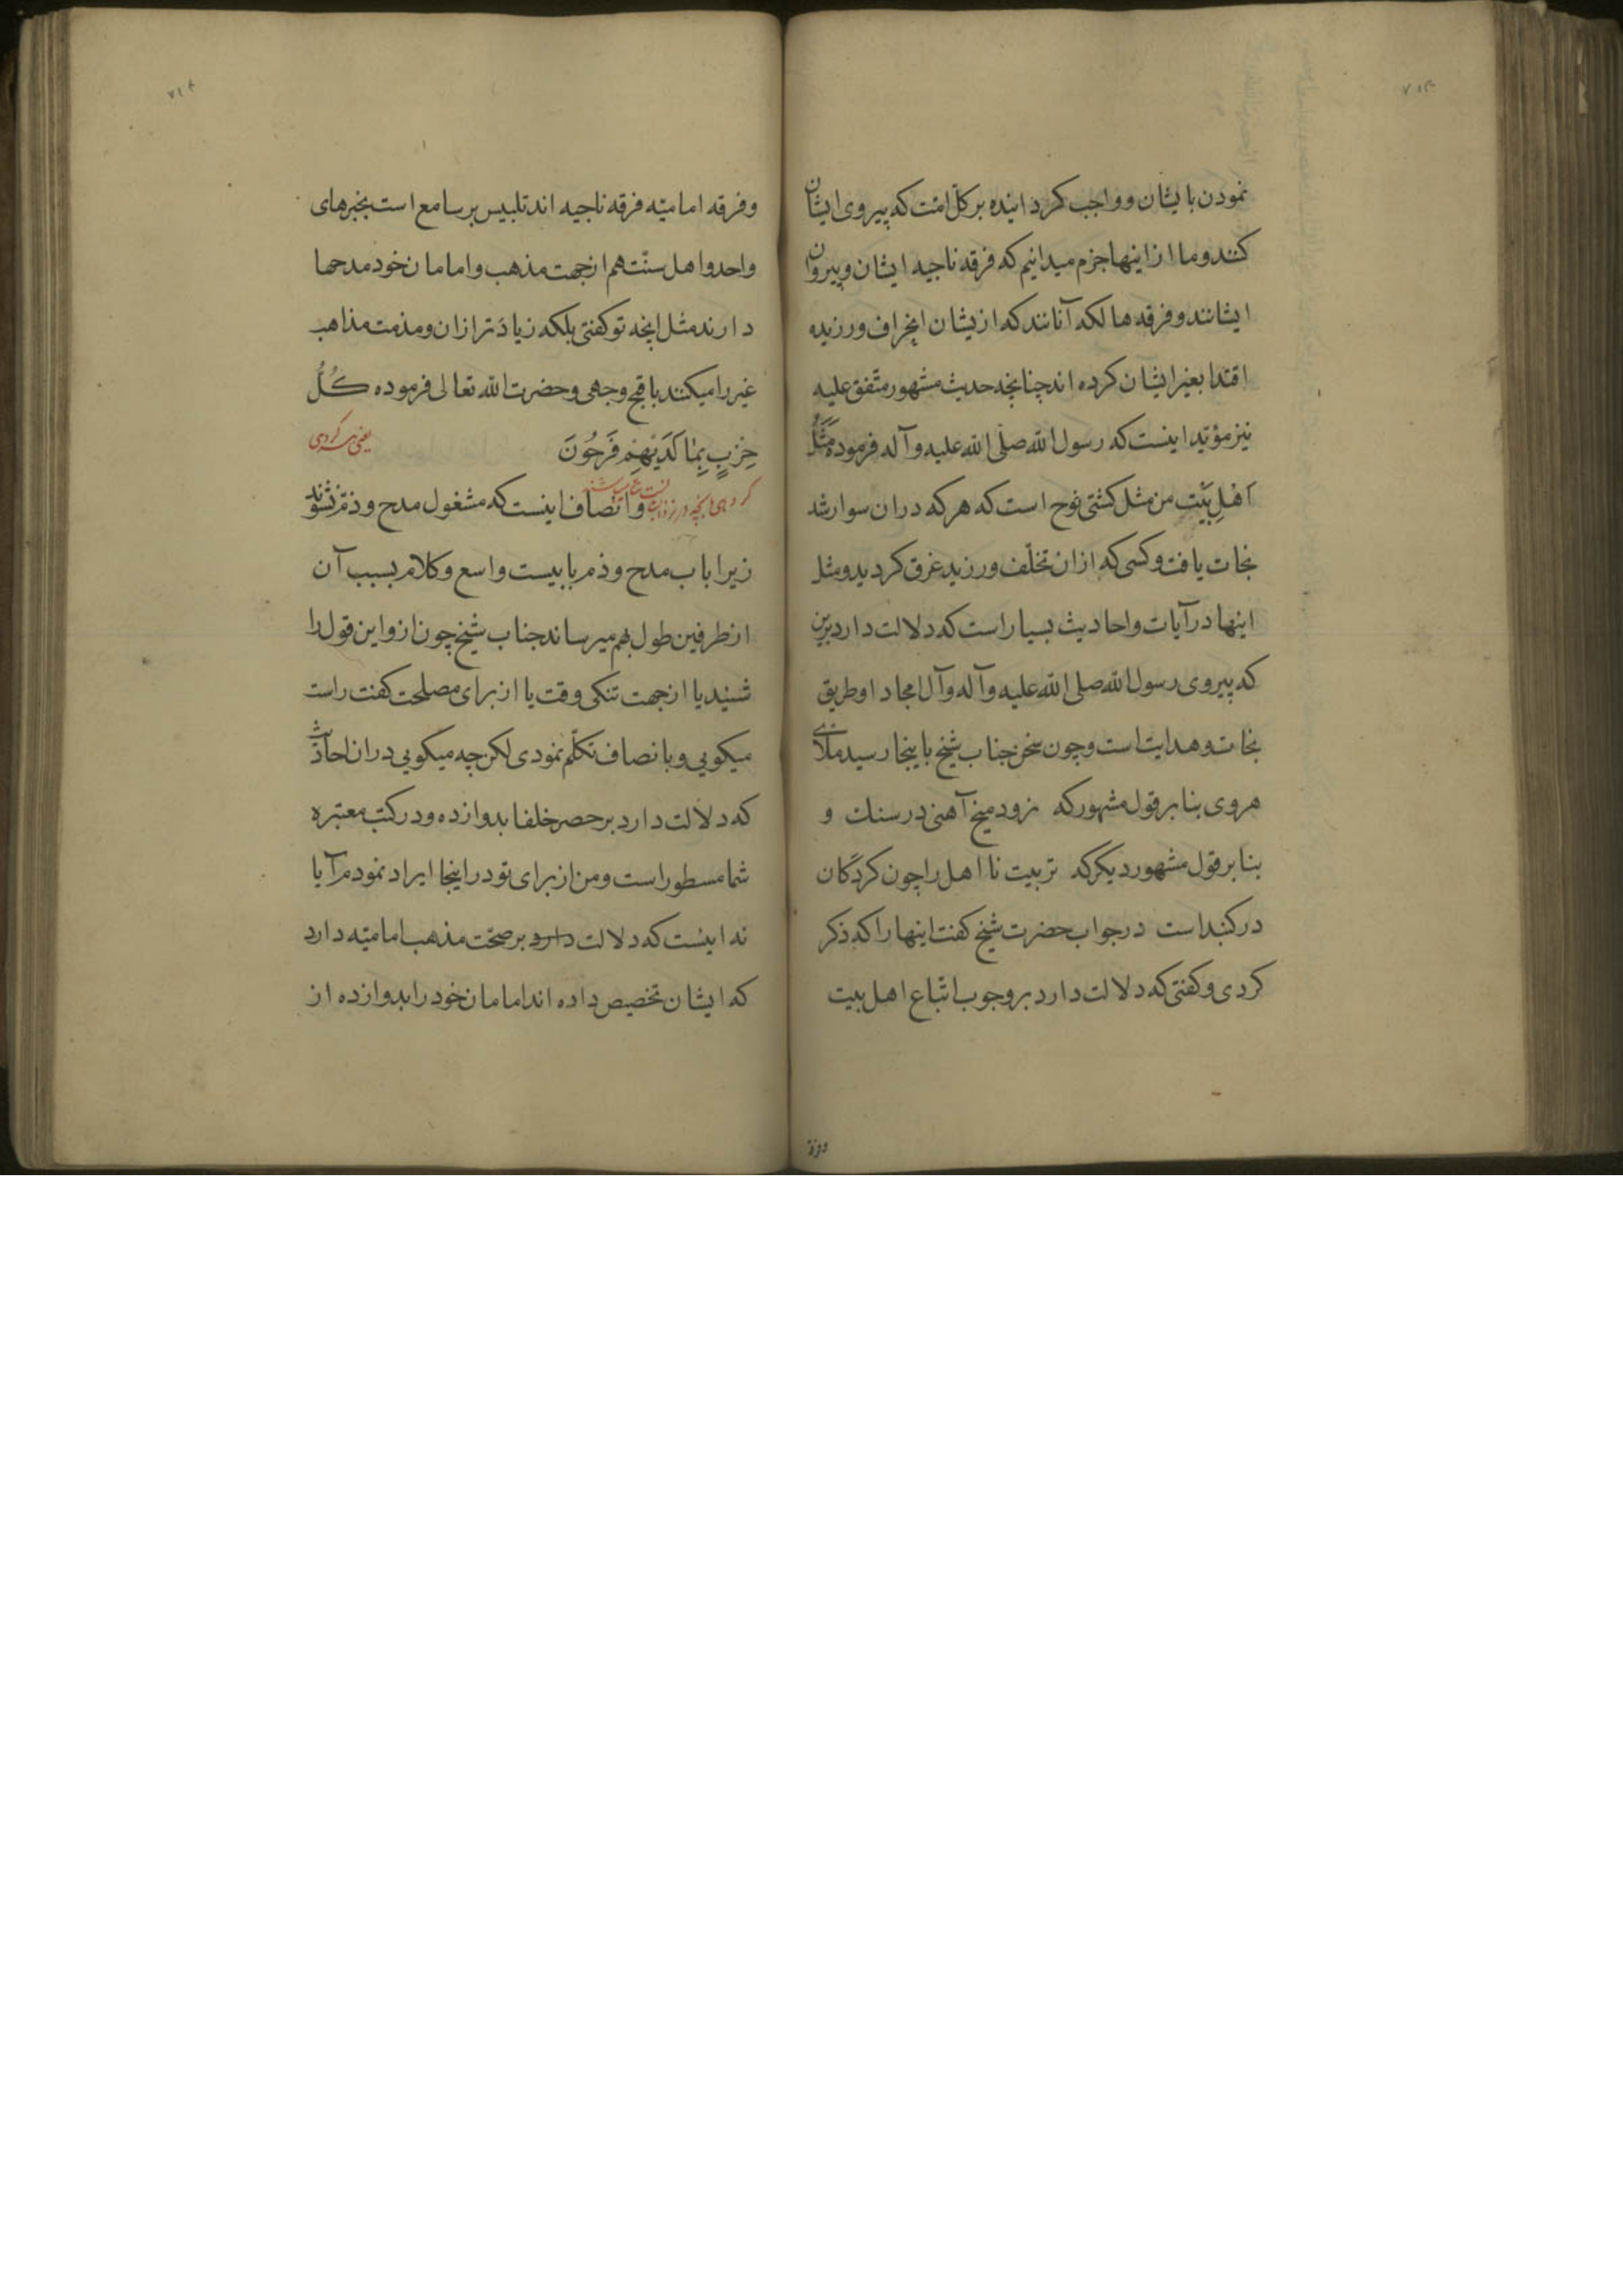 ۷۱۳
نمودن بایشان و واجب کردانیده بر کلّ امّت که پیروی ایشان
کنند و ما ازاینها جزم میدانیم که فرقه ناجیه ایشان و پیروان
ایشانند و فرقه هالکه آنانند که ازیشان انحراف ورزیده
اقتدا بغیر ایشان کرده اند چنانچه حدیث مشهور متّفق علیه
نیز مؤیّد اینست که رسول الله صلّی الله علیه و آله فرموده مَثَلُ
اَهْلِ بَیْتِ من مثل کشتی نوح است که هر که دران سوار شد
نجات یافت و کسی که ازان تخلّف ورزید غرق کردید و مثل
اینها در آیات و احادیث بسیار است که دلالت دارد برین
که پیروی رسول الله صلی الله علیه و آله و آل امجاد او طریق
نجات و هدایت است و چون سخن جناب شیخ باینجا رسید ملای
هروی بنا بر قول مشهور که نرود میخ آهنی در سنک و
بنا بر قول مشهور دیکر که تربیت نا اهل را چون کردکان
در کنبد است در جواب حضرت شیخ کفت اینها را که ذکر
کردی و کفتی که دلالت دارد بر وجوب اتّباع اهل بیت
وفرقه
۷۱۴
و فرقه امامیّه فرقه ناجیه اند تلبیس بر سامع است بخبرهای
واحد و اهل سنّت هم ازجهت مذهب و امامان خود مدحها
دارند مثل اینچه تو کفتی بلکه زیادَتر ازان و مذمت مذاهب
غیر را میکنند باقبح وجهی و حضرت الله تعالی فرموده کُلُّ
حِزْبٍ بِمٰا لَدَیْهِمْ فَرِحُونَ یعنی هر کروهی
کروهی بانچه در نزد ایشان است شاد میباشند و انصاف اینست که مشغول مدح و ذمّ نشوند
زیرا باب مدح و ذم بابیست واسع و کلام بسبب آن
از طرفین طول بهم میرساند جناب شیخ چون ازو این قول را
شنید یا ازجهت تنکی وقت یا از برای مصلحت کفت راست
میکویی و بانصاف تکلّم نمودی لکن چه میکویی دران احادیث
که دلالت دارد بر حصر خلفا بدوازده و در کتب معتبره
شما مسطور است و من از برای تو در اینجا ایراد نمودم آیا
نه اینست که دلالت دارد بر صحّت مذهب امامیّه دارد
که ایشان تخصیص داده اند امامان خود را بدوازده از